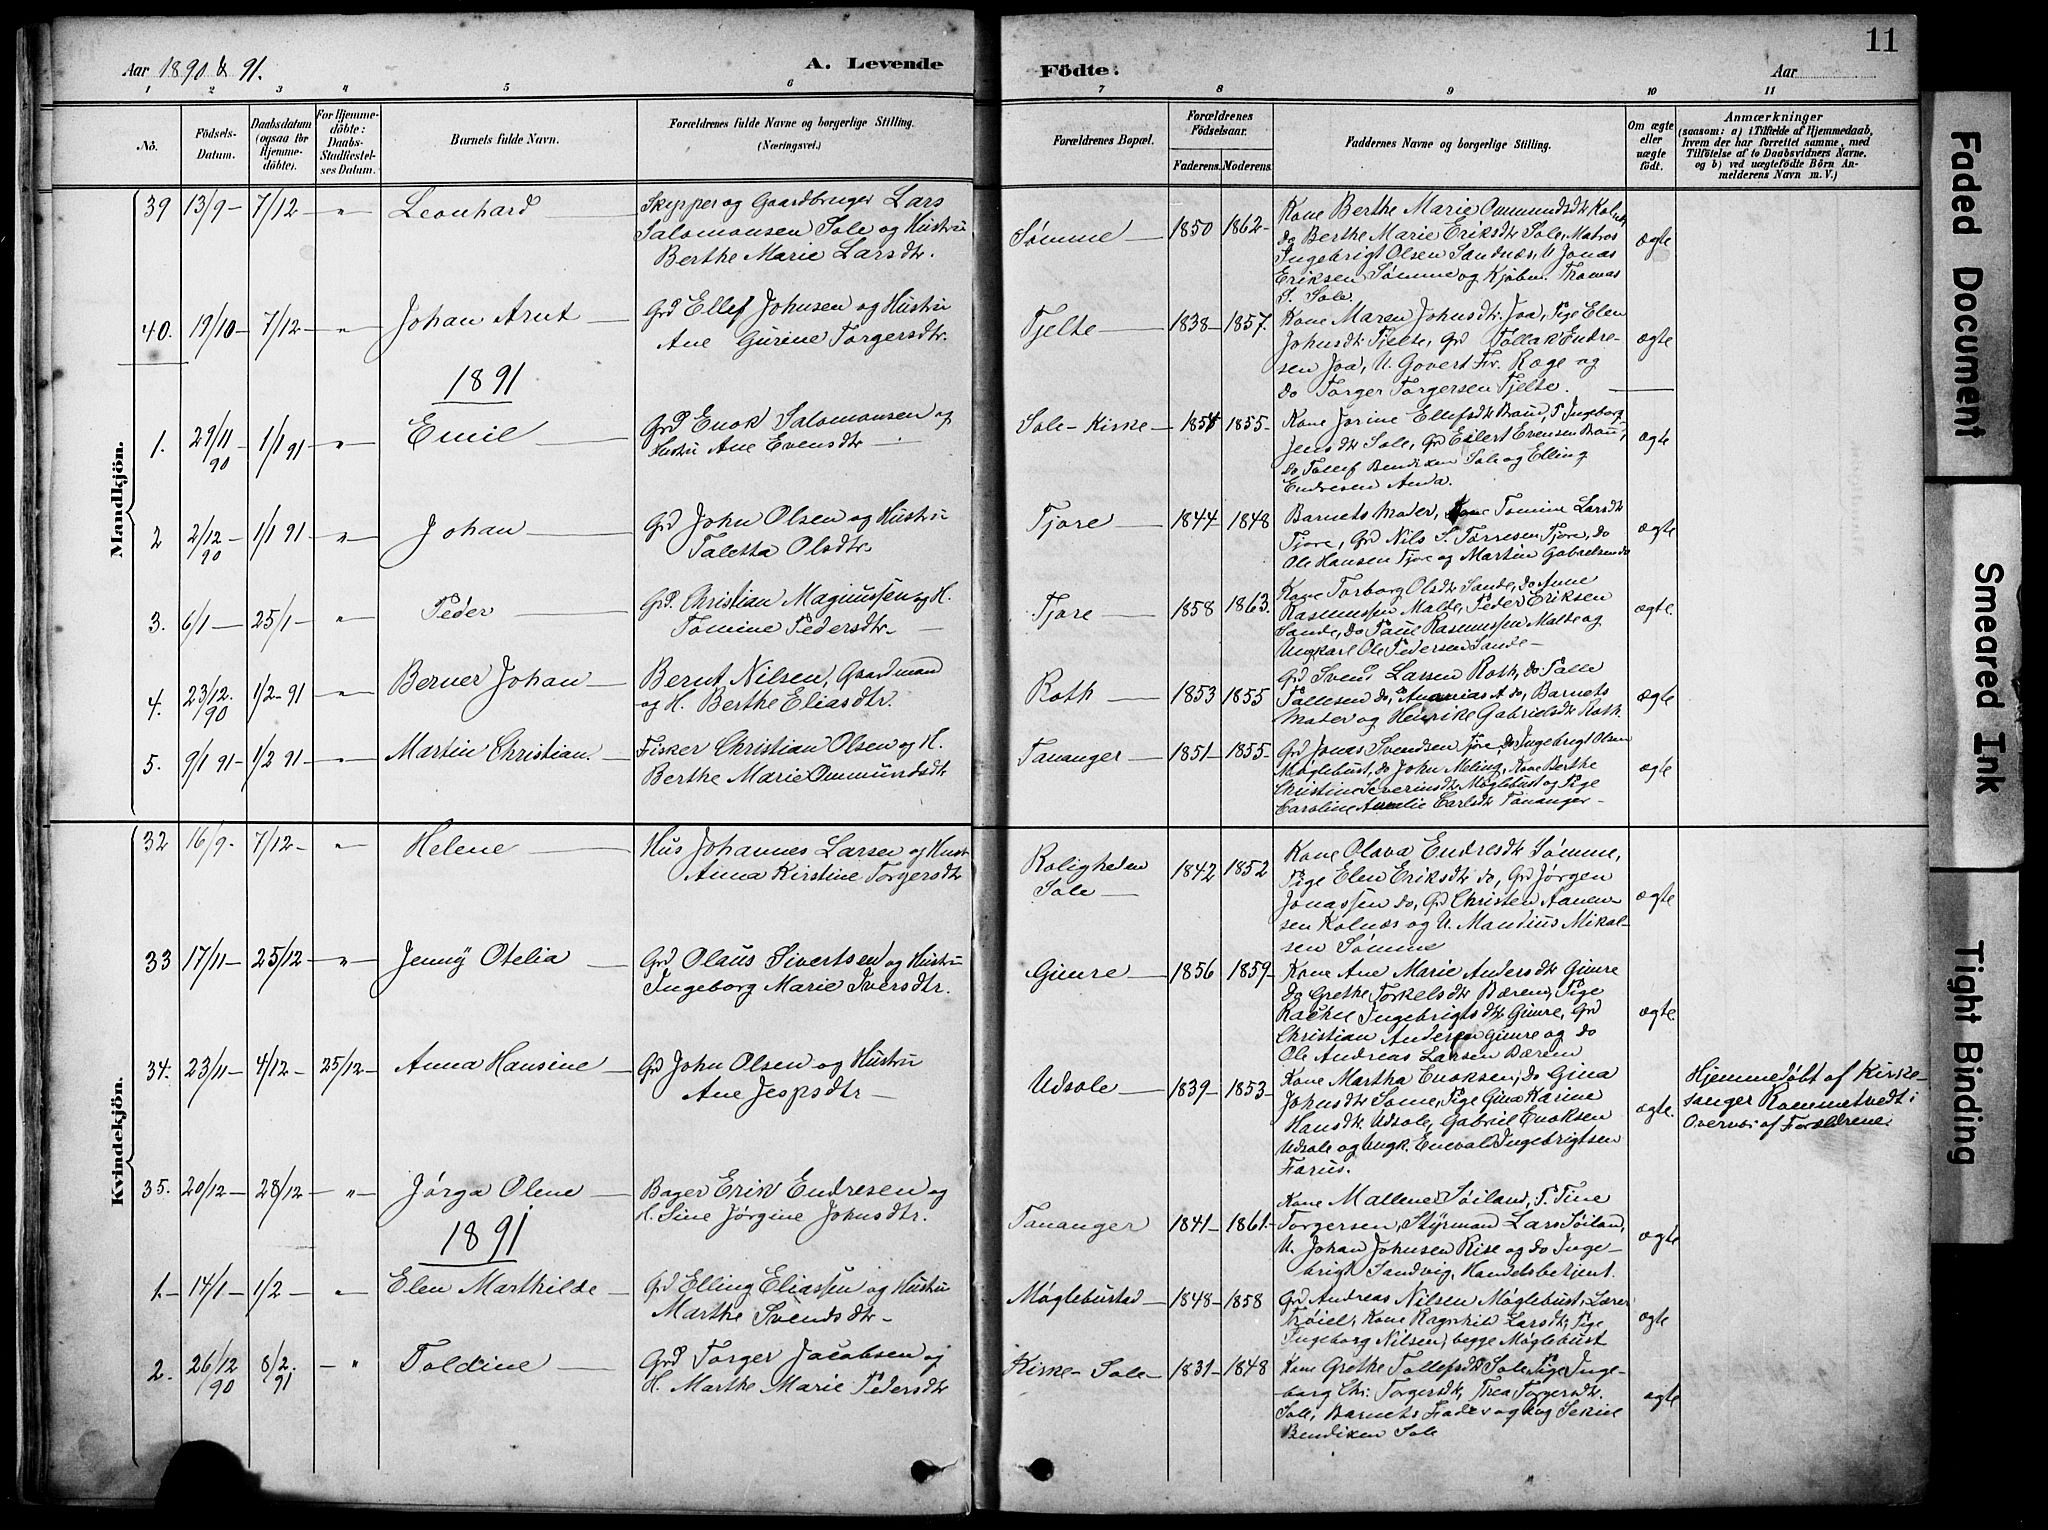 Aar 1890 & 91.
A. Levende
Födte.
Aar
11
1 2 3 4 5 6 7 8 9 10 11
No.
Födsels-Datum.
Daabsdatum (ogsaa for Hjemmedöbte).
For Hjemmedöbte: Daabs-Stadfæstelses Datum.
Barnets fulde Navn.
Forældrenes fulde Navne og borgerlige Stilling.
(Næringsvei.)
Forældrenes Bopæl.
Forældrenes Födselsaar.
Faderens. Moderens.
Faddernes Navne og borgerlige Stilling.
Om ægte eller uægte födt.
Anmærkninger
(saasom: a) i Tilfælde af Hjemmedaab,
hvem der har forrettet samme, med
Tilföielse af to Daabsvidners Navne.
og b) ved uægtefödte Börn An-
melderens Navn m. V.)
Mandkjön.
39 13/9 - 7/12 - " - Leonhard
Skipper og Gaardbruger Lars
Salomonsen Sole og Hustru
Berthe Marie Larsdtr.
Sømme 1850 1862 ægte
Kone Berthe Marie Ommundsdtr Kolnes,
do Berthe Marie Eriksdtr Sole, Matros
Ingebrigt Olsen Sandnæs, U. Jonas
Eriksen Sømme og Kjøbm. Thomas
S. Sole.
40. 19/10 - 7/12 - " Johan Arnt
Grd Ellef Johnsen og Hustru
Ane Gurine Torgersdtr.
Tjelte 1838 - 1857. ægte
Kone Maren Johnsdtr. Joa, Pige Elen
Johnsdtr Tjelte, Grd Tollak Endre-
sen Joa, U. Govert Fr. Ræge og
do Torger Torgersen Tjelte.
1891
1. 29/11 90 1/1 91 " Emil
Grd Enok Salomonsen og
Hustru Ane Evensdtr
Sole-Kirke 1854 1855 - ægte
Kone Jorine Ellefsdtr Braut, P. Ingeborg
Jensdtr Sole, Grd Eilert Evensen Braut,
do Tollef Bendixen Sole og Elling
Endresen Anda.
2 2/12 90 1/1 91 " Johan
Grd John Olsen og Hustru
Taletta Olsdtr
Tjore 1844 - 1848 ægte
Barnets Moder, Kone Tomine Larsdtr
Tjore, Grd Nils S. Torresen Tjore, do
Ole Hansen Tjore og Martin Gabrielsen do
3. 6/1 25/1 " Peder
Grd. Christian Magnussen og H.
Tomine Pedersdtr.
Tjore 1858 1863. ægte
Kone Torborg Olsdtr Sande, do Anne
Rasmussen Malde, Peder Eriksen
Sande, do Paul Rasmussen Malde og
Ungkarl Ole Pedersen Sande
4. 23/12 90 1/2 91 " Berner Johan
Bernt Nilsen, Gaardmand
og H. Berthe Eliasdtr.
Roth 1853 1855 ægte
Grd Svend Larsen Roth, do Talle
Tallesen do, do Ananias A do, Barnets
Moder og Henrike Gabrielsdtr Roth.
5. 9/1 91 1/2 91 " Martin Christian.
Fisker Christian Olsen og H.
Berthe Marie Ommundsdtr
Tananger 1851 - 1855 - ægte
Grd Jonas Svendsen Tjore, do Ingebrigt Olsen
Møglebust, do John Meling, Kone Berthe
Christine Severinsdtr Møglebust og Pige
Caroline Amelie Carlsdtr Tananger
Kvindekjön.
32 16/9 - 7/12 - " Helene
Hus Johannes Larsen og Hust
Anna Kirstine Torgersdtr
Roligheden
Sole 1842 1852 ægte
Kone Olava Endresdtr Sømme,
Pige Elen Eriksdtr do, Grd Jørgen
Jonassen do, Grd Christen Aanen-
sen Kolnæs og U. Mandius Mikal-
sen Sømme
33 17/11 - 25/12 " Jenny Otelia
Grd Olaus Sivertsen og Hustru
Ingeborg Marie Iversdtr.
Gimre 1856 1859 - ægte
Kone Ane Marie Andersdtr Gimre
do Grethe Torkelsdtr Bærem, Pige
Rachel Ingebrigtsdtr Gimre, Grd
Christian Andersen Gimre og do
Ole Andreas Larsen Bærem
34. 23/11 4/12 25/12 Anna Hansine
Grd John Olsen og Hustru
Ane Jespsdtr
Udsole 1839 - 1853 ægte
Kone Martha Enoksen, do Gina
Johnsdtr Some, Pige Gina Karine
Hansdtr. Udsole, Gabriel Enoksen
Udsole og Ungk. Eneval Ingebrigtsen
Forus.
Hjemmedøbt af Kirke-
sanger Rommetvedt i
Overvær af Forældrene
35. 20/12 - 28/12 - " Jørga Olene
Bager Erik Endresen og
H. Sine Jørgine Johnsdtr.
Tananger 1841 - 1861 - ægte
Kone Mallene Søiland, P. Tine
Torgersen, Styrmand Lars Søiland,
U. Johan Johnsen Rise og do Inge-
brigt Sandvig, Handelsbetjent.
1891
1. 14/1 - 1/2 " Elen Marthilde
Grd Elling Eliassen og Hustru
Marthe Svendsdtr
Møglebustad 1848 - 1858 ægte
Grd Andreas Nilsen Møglebust, Lærer
Trøiel, Kone Ragnhild Larsdtr, Pige
Ingeborg Nilsen, begge Møglebust
2. 26/12 90 8/2. 91 " Toldine
Grd Torger Jacobsen og
H. Marthe Marie Pedersdtr
Kirke-Sole 1831 - 1848 ægte
Kone Grethe Tollefsdtr Sole, Pige Inge-
borg Chr. Torgersdtr, Thea Torgersdtr.
Sole, Barnets Fader og Ung Sekine
Bendixen Sole
Faded Document
Smeared Ink
Tight Binding